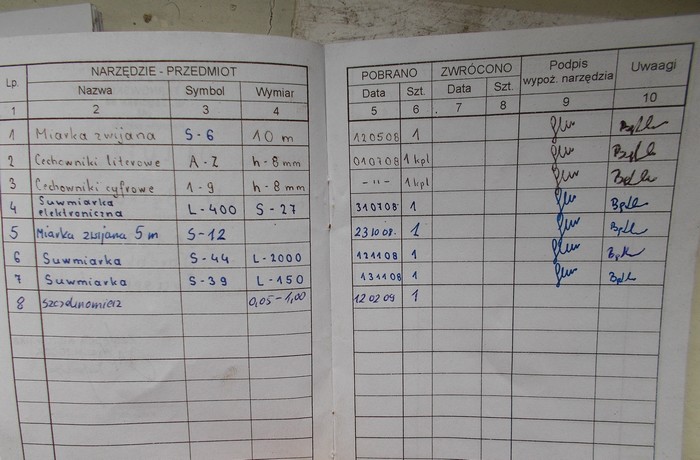 Lp. NARZĘDZIE - PRZEDMIOT POBRANO ZWRÓCONO Podpis wypoż. narzędzia Uwaagi
Nazwa Symbol Wymiar Data Szt. Data Szt.
1 2 3 4 5 6 7 8 9 10
1 Miarka zwijana S-6 10 m 120508 1
2 Cechowniki literowe A-Z h-8mm 010708 1 kpl
3 Cechowniki cyfrowe 1-9 h-8mm -"- 1 kpl
4 Suwmiarka elektroniczna L-400 S-27 310708 1
5 Miarka zwijana 5 m S-12 231008. 1
6 Suwmiarka S-44 L-2000 121108 1
7 Suwmiarka S-39 L-150 131108 1
8 Szczelinomierz 0,05-1,00 120209 1